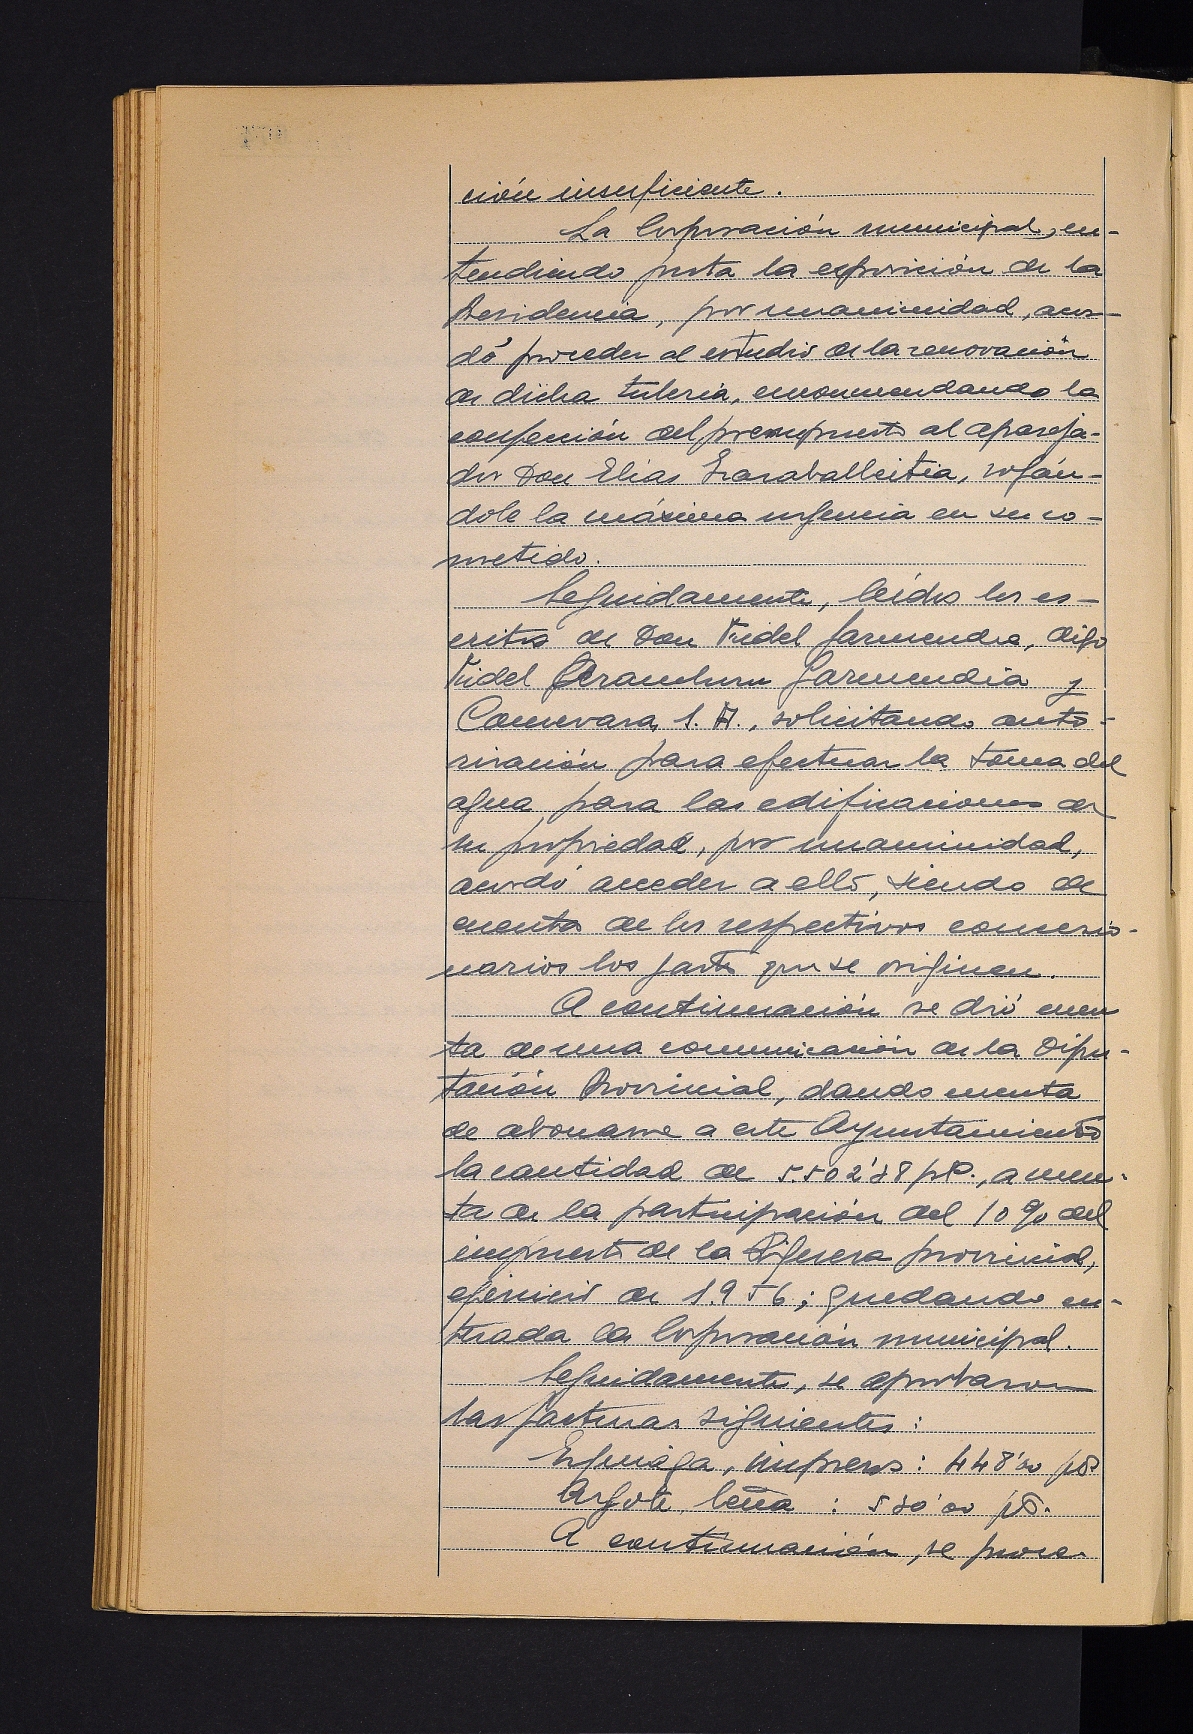 ción insuficiente.
La Corporación municipal, en-
tendiendo justa la exposición de la
Presidencia, por unanimidad, acor-
dó proceder al estudio de la renovación
de dicha tubería, encomendando la
confección del presupuesto al apareja-
dor Don Elías Izaraballeitia, rogán-
dole la máxima urgencia en su co-
metido.
Seguidamente, leídos los es-
critos de Don Fidel Garmendia, digo
Fidel Aramburu Garmendia y
S. A., solicitando auto-
rización para efectuar la toma del
agua para las edificaciones de
su propiedad, por unanimidad,
acordó acceder a ello, siendo de
cuenta de los respectivos concesio-
narios los gastos que se originen.
A continuación se dió cuen
ta de una comunicación de la Dipu-
tación Provincial, dando cuenta
de abonarse a este Ayuntamiento
la cantidad de pts., a cuen-
ta de la participación del 10 % del
impuesto de la Riqueza provincial,
ejercicio de 1.956; quedando en-
terada la Corporación municipal.
Seguidamente, se aprobaron
las facturas siguientes:
impresos: 448'00 pts
Argote, leña : pts.
A continuación, se proce-